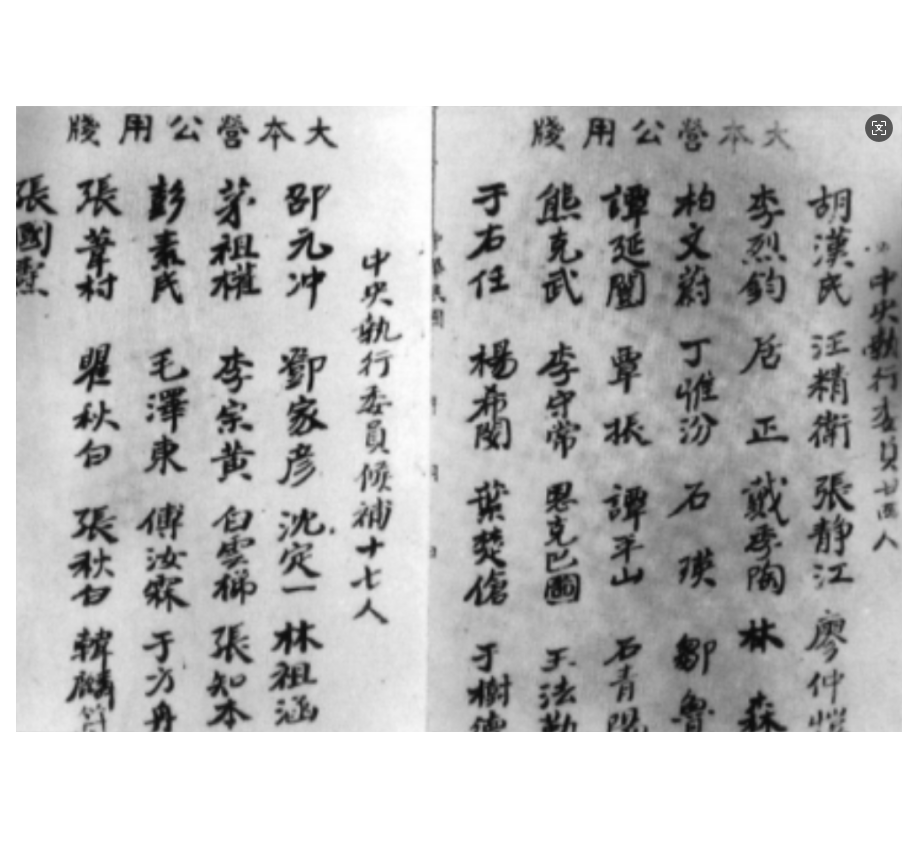 大本營公用牋
中央執行委員廿四人
胡漢民 汪精衛 張靜江 廖仲愷
李烈鈞 居正 戴季陶 林森
柏文蔚 丁惟汾 石瑛 鄒魯
譚延闓 覃振 譚平山 石青陽
熊克武 李守常 恩克巴圖 王法勤
于右任 楊希閔 葉楚傖 于樹德
中華民國 年 月 日
大本營公用牋
中央執行委員候補十七人
邵元冲 鄧家彥 沈定一 林祖涵
茅祖權 李宗黃 白雲梯 張知本
彭素民 毛澤東 傅汝霖 于方舟
張葦村 瞿秋白 張秋白 韓麟符
張國燾